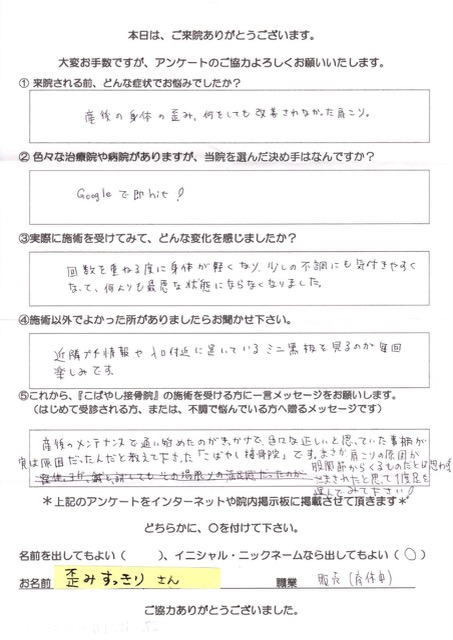 本日は、ご来院ありがとうございます。
大変お手数ですが、アンケートのご協力よろしくお願いいたします。
① 来院される前、どんな症状でお悩みでしたか?
産後の身体の歪み、何をしても改善されなかった肩こり。
② 色々な治療院や病院がありますが、当院を選んだ決め手はなんですか?
Googleで即hit!
③実際に施術を受けてみて、どんな変化を感じましたか?
回数を重ねる度に身体が軽くなり、少しの不調にも気付きやすく
なって、何よりも最悪な状態にならなくなりました。
④施術以外でよかった所がありましたらお聞かせ下さい。
近隣プチ情報や入口付近に置いているミニ黒板を見るのが毎回
楽しみです。
⑤これから、『こばやし接骨院』の施術を受ける方に一言メッセージをお願いします。
(はじめて受診される方、または、不調で悩んでいる方へ贈るメッセージです)
産後のメンテナンスで通い始めたのがきっかけで、色々な正しいと思っていた事柄が
実は原因だったんだと教えて下さった「こばやし接骨院」です。まさか肩こりの原因が
股関節からくるものだとは思わず
だまされたと思って1度足を
運んでみて下さい!
*上記のアンケートをインターネットや院内掲示板に掲載させて頂きます*
どちらかに、○を付けて下さい。
名前を出してもよい( )、イニシャル・ニックネームなら出してもよい(○)
お名前 歪みすっきり さん 職業 販売(育休中)
ご協力ありがとうございました。